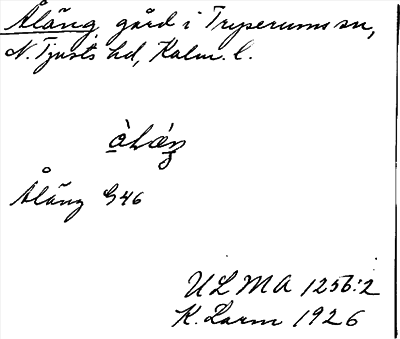 Åläng gård i Tryserums sn,
N. Tjusts hd, Kalm. l.
Åläng G46
ULMA 1256:2
K. Larm 1926